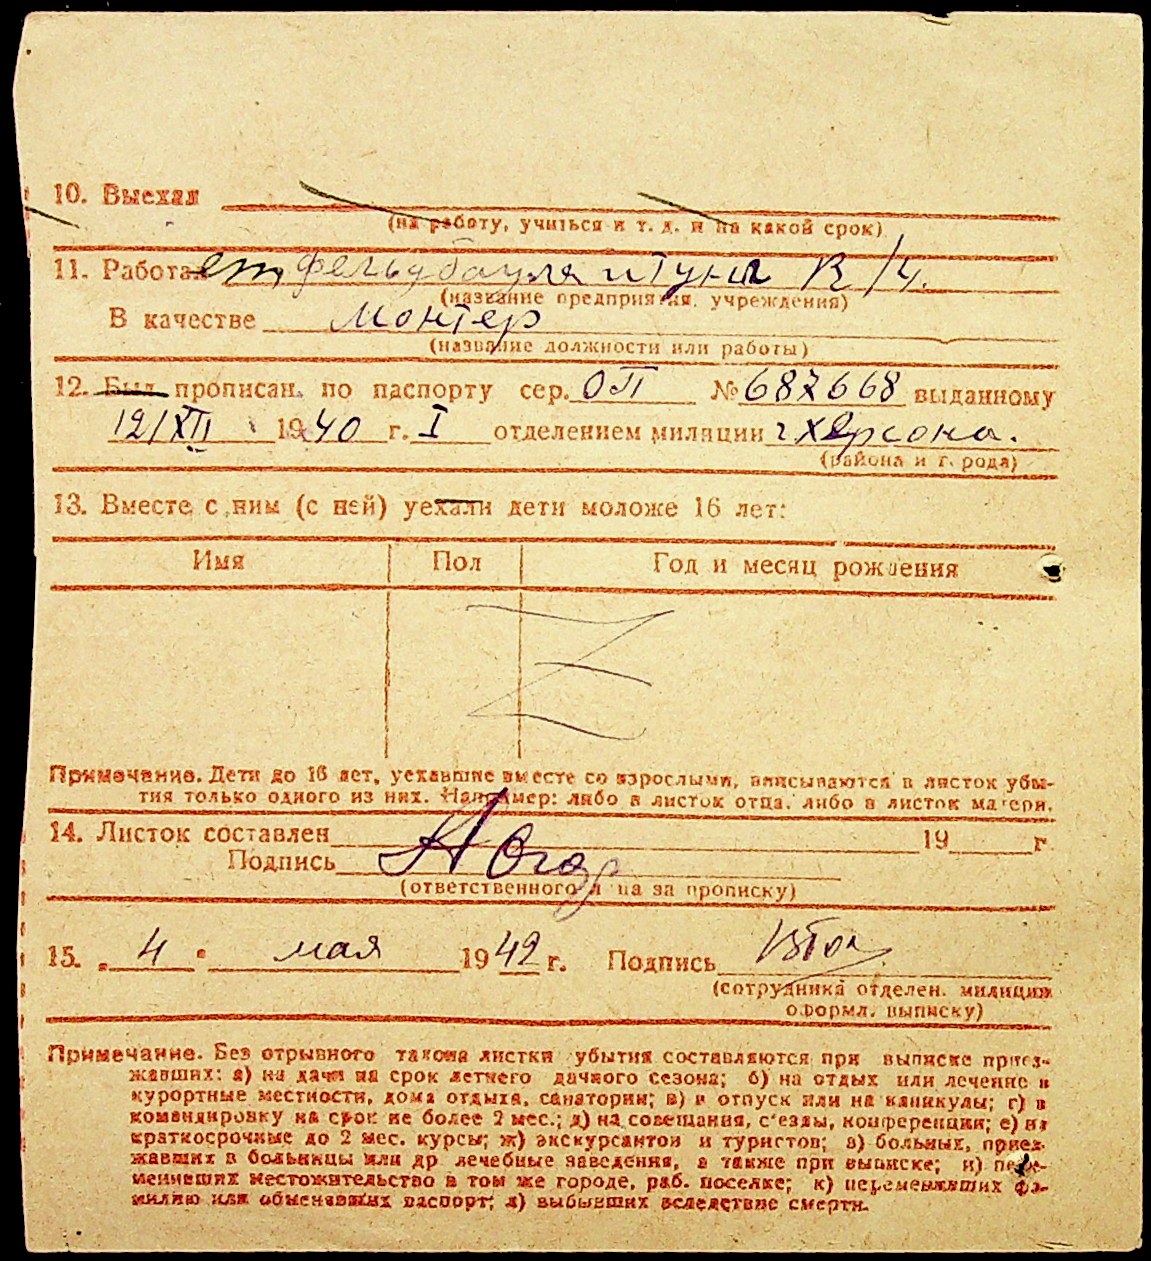 10. Выехал
(на работу, учиться и т. д. и на какой срок)
11. Работает
(название предприятия, учреждения)
В качестве монтер
(название должности или работы)
12. Был прописан по паспорту сер. ОП № 687668 выданному
12/XII 1940 г. I отделением милиции г Херсона.
(района и города)
13. Вместе с ним (с ней) уехали дети моложе 16 лет:
Имя Пол Год и месяц рождения
Примечание. Дети до 16 лет, уехавшие вместе со взрослыми, вписываются в листок убы-
тия только одного из них. Например: либо в листок отца, либо в листок матери.
14. Листок составлен 19 г.
Подпись
(ответственного лица за прописку)
15. „ 4 " мая 1942 г. Подпись
(сотрудника отделен. милиции
оформл. выписку)
Примечание. Без отрывного талона листки убытия составляются при выписке приез-
жавших: а) на дачи на срок летнего дачного сезона; б) на отдых или лечение в
курортные местности, дома отдыха, санатории; в) в отпуск или на каникулы; г) в
командировку на срок не более 2 мес.; д) на совещания, с'езды, конференции; е) на
краткосрочные до 2 мес. курсы; ж) экскурсантов и туристов; з) больных, приез-
жавших в больницы или др лечебные заведения, а также при выписке; и) пере-
менивших местожительство в том же городе, раб. поселке; к) переменивших фа-
милию или обменявших паспорт; л) выбывших вследствие смерти.